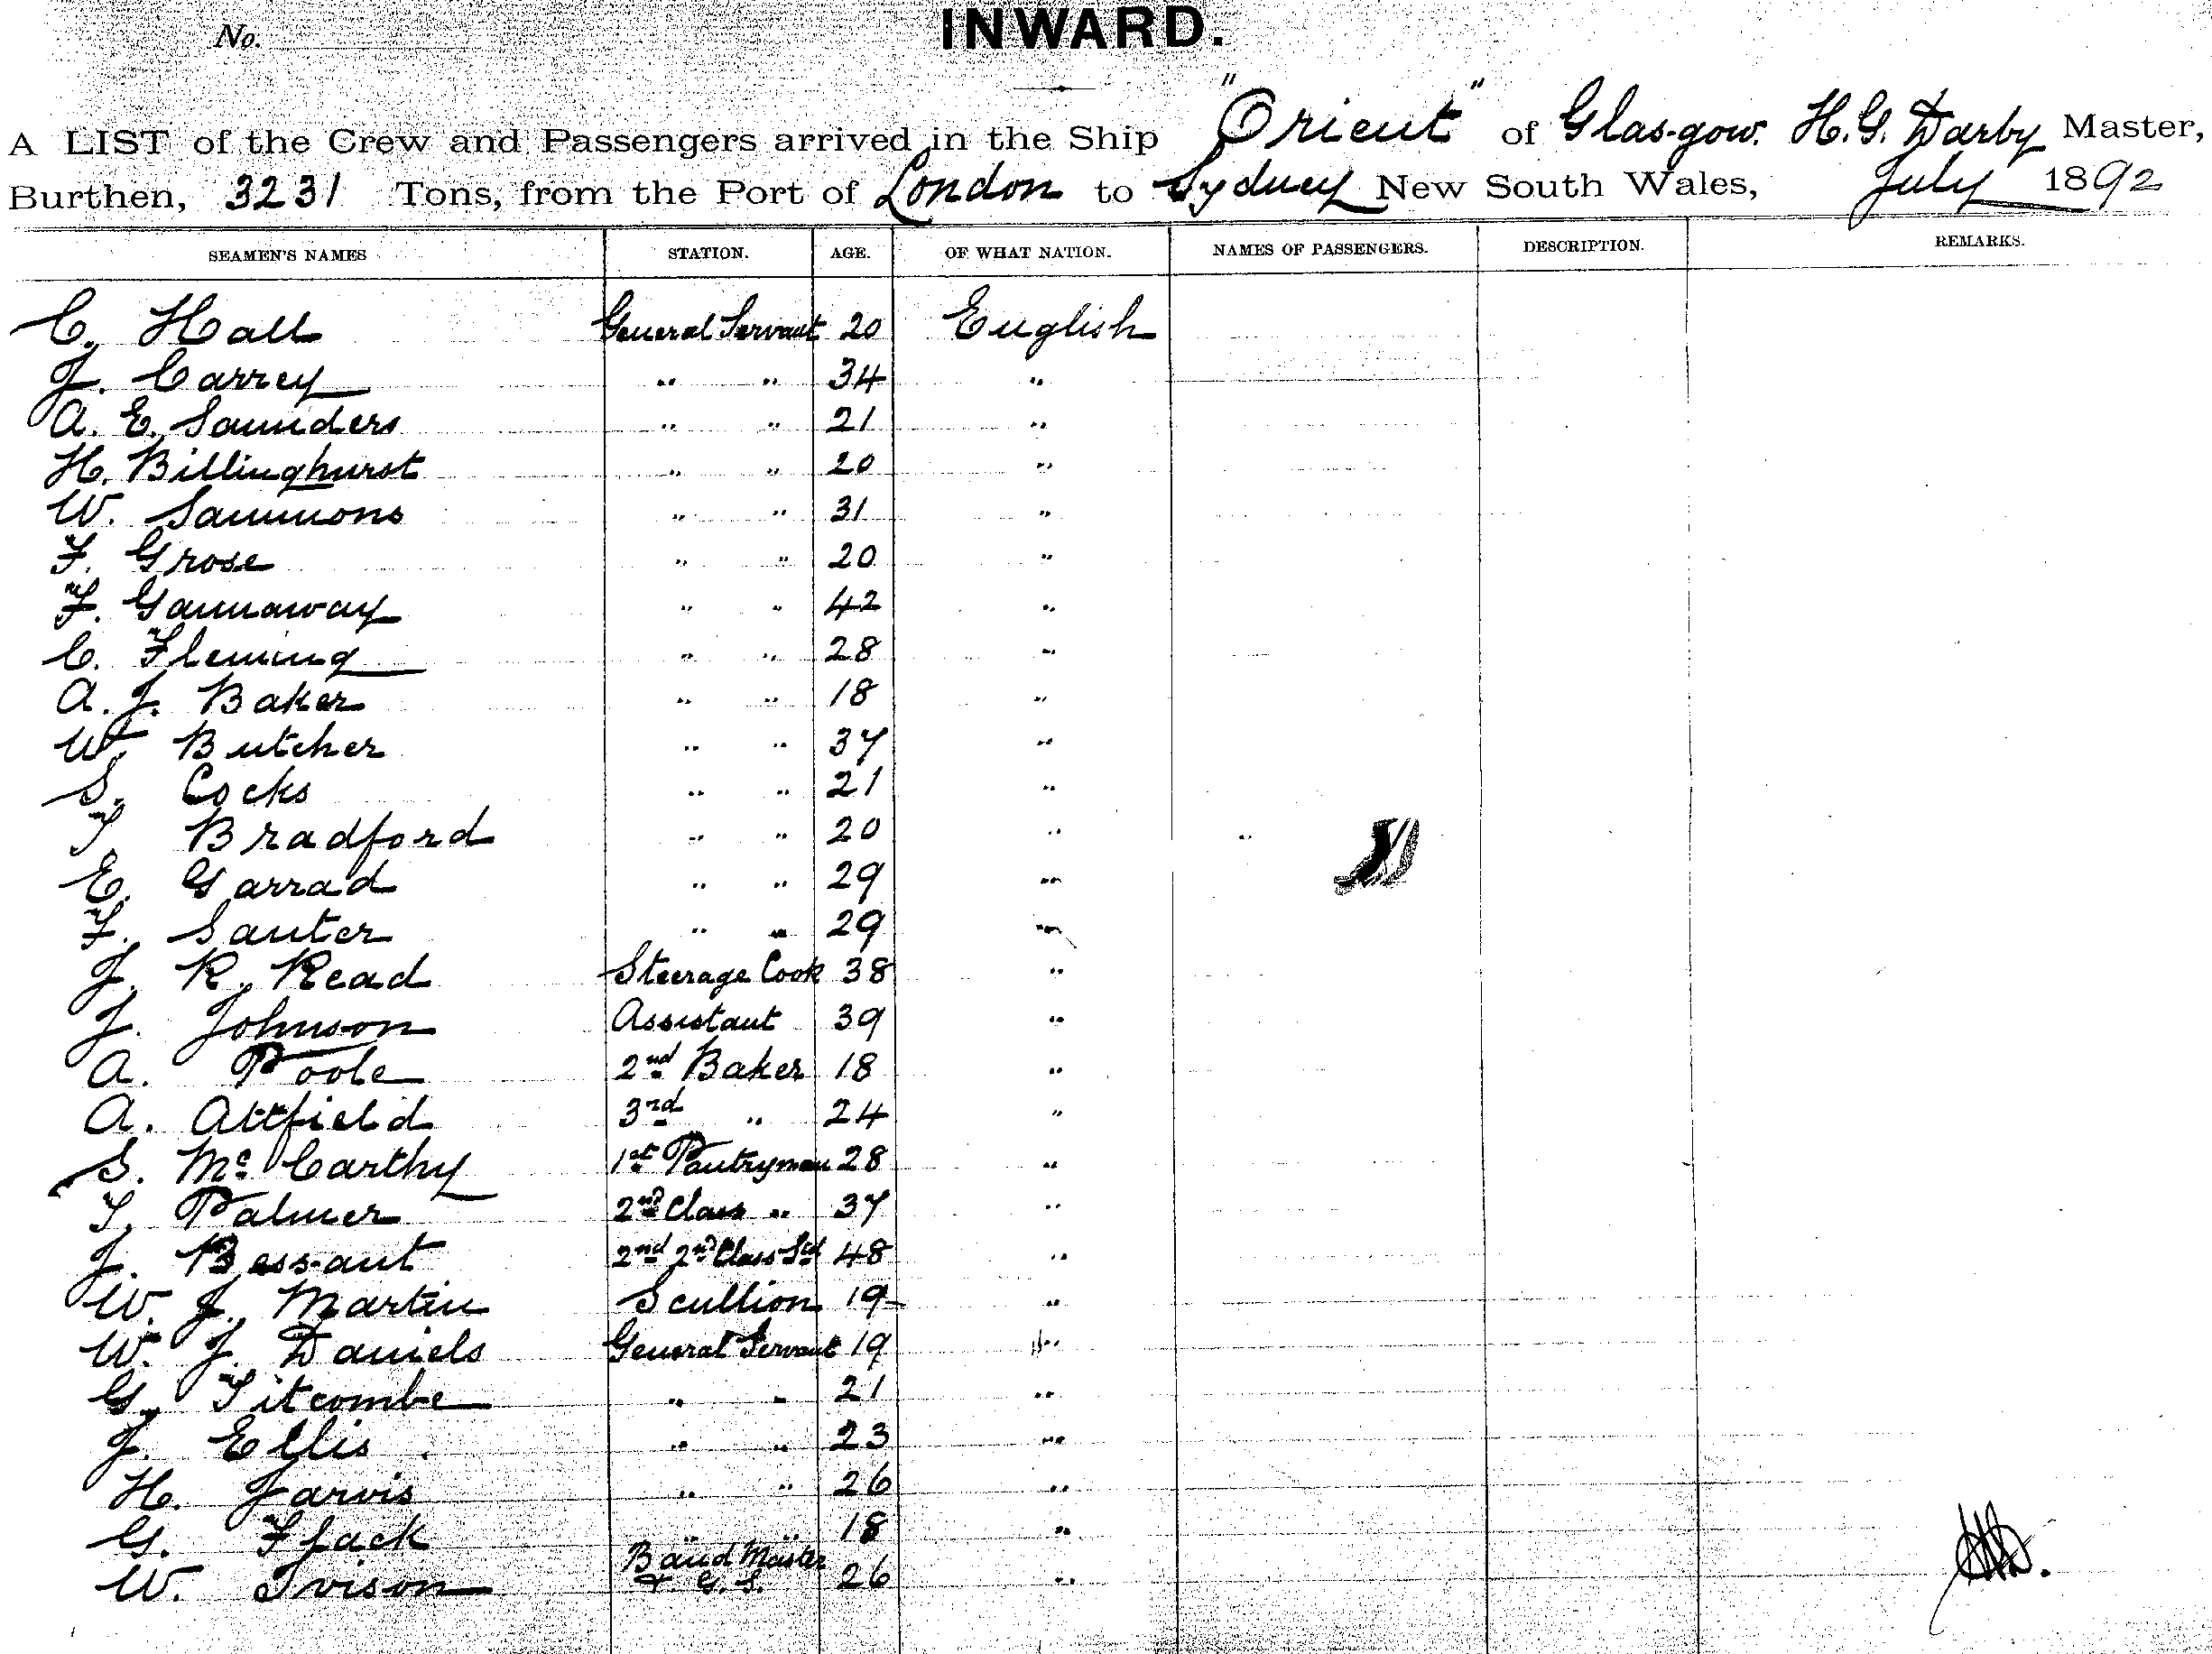 No.
INWARD.
A LIST of the Crew and Passengers arrived in the Ship "Orient" of Glasgow. H. G. Darby Master,
Burthen, 3231 Tons, from the Port of London to Sydney New South Wales, July 1892
SEAMEN'S NAMES STATION. AGE. OF WHAT NATION. NAMES OF PASSENGERS. DESCRIPTION. REMARKS.
C. Hall General Servant 20 English
J. Carrey " " 34 "
A. E. Saunders " " 21 "
H. Billinghurst " " 20 "
W. Sammons " " 31 "
F. Grose " " 20 "
F. Gannaway " " 42 "
C. Fleming " " 28 "
A. J. Baker " " 18 "
W. Butcher " " 37 "
S. Cocks " " 21 "
T. Bradford " " 20 "
E. Garrad " " 29 "
F. Santer " " 29 "
J. R. Read Steerage Cook 38 "
J. Johnson Assistant 39 "
A. Poole 2nd Baker 18 "
A. Attfield 3rd " 24 "
S. McCarthy 1st Pantryman 28 "
T. Palmer 2nd Class " 37 "
J. Bessant 2nd 2nd Class Std 48 "
W. J. Martin Scullion 19 "
W. J. Daniels General Servant 19 "
G. Titcombe " " 21 "
J. Ellis " " 23 "
H. Jarvis " " 26 "
G. Flack " " 18 "
W. Ivison Band Master & G. S. 26 "